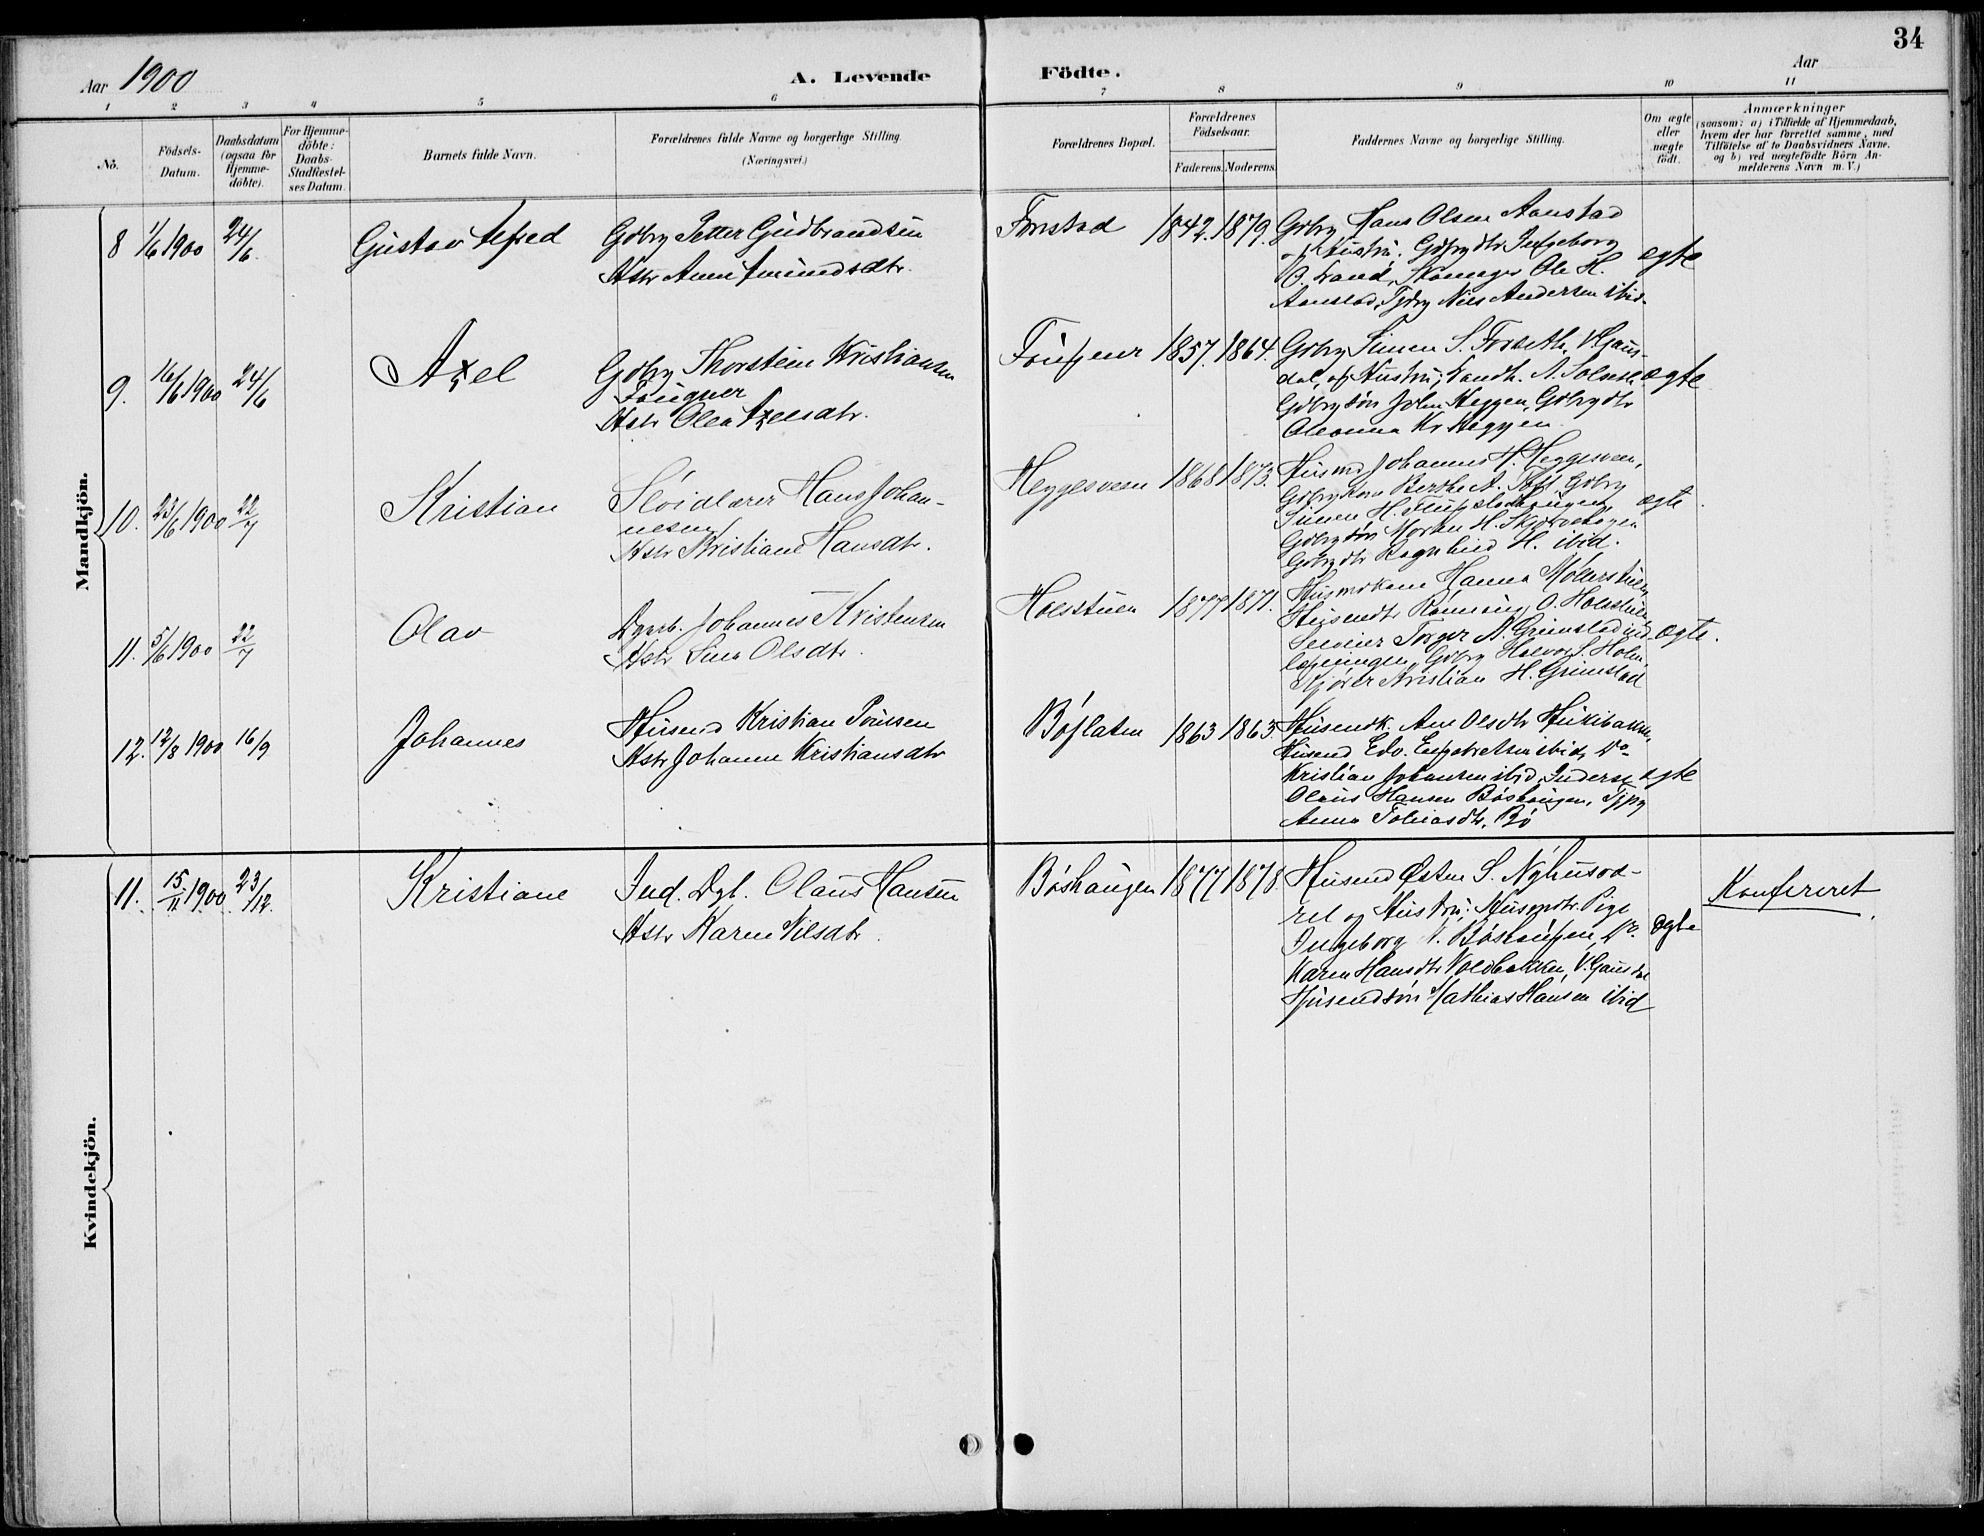 34
Aar 1900
A. Levende
Födte.
Aar
1 2 3 4 5 6 7 8 9 10 11
No.
Födsels-Datum.
Daabsdatum (ogsaa for Hjemmedöbte).
For Hjemmedöbte: Daabs-Stadfestelses Datum.
Barnets fulde Navn.
Forældrenes fulde Navne og borgerlige Stilling.
(Næringsvei.)
Forældrenes Bopæl.
Forældrenes Födselsaar.
Faderens. Moderens.
Faddernes Navne og borgerlige Stilling.
Om ægte eller uægte födt.
Anmærkninger
(saasom: a) i Tilfælde af Hjemmedaab,
hvem der har forrettet samme, med
Tilföielse af to Daabsvidners Navne.
og b) ved uægtefödte Börn An-
melderens Navn m.V.)
Mandkjön.
8 1/6 1900 24/6. Gustav Alfred
Gdbrg Petter Gudbrandsen
Hstr Anne Amundsdtr.
Forstad 1842. 1879.
Gdbrg Hans Olsen Aanstad
og Hustru; Gdbrgdtr Ingeborg
O. Sand, Skomager Ole H.
Aanstad, Gdbrg Nils Andersen ibid.
ægte
9. 16/6 1900 24/6 Axel
Gdbrg Thorstein Kristiansen
Fougner
Hstr Olea Axelsdtr.
Fougner 1857. 1864.
Gdbrg Simen S. Forseth, V. Gaus-
dal, og Hustru; Landh. A. Solseth
Gdbrgsön John Heggen, Gdbrgdtr
Oleanna Kr. Heggen.
ægte
10. 23/6 1900 22/7 Kristian
Slöidlærer Hans Johan-
nesen
Hstr Kristiane Hansdtr.
Heggesveen 1868 1873.
Husmd Johannes H. Heggesveen,
Gdbrgkone Berthe A. Toft Gdbrg
Simen H. Flugstadhaugen
Gdbrgsön Morten H. Skjervehagen
Gdbrgdtr Ragnhild H. ibid.
ægte
11. 5/6 1900 22/7 Olav
Dgarb. Johannes Kristensen
Hstr Sina Olsdtr.
Holsstuen 1877 1871.
Husmdkone Hanna
Husmdtr Rönnaug O. Holsstuen
Torger A. Grimstad
Gdbrg Halvor S. Holm
Kjörer Kristian H. Grimstad
ægte.
12. 12/8 1900 16/9 Johannes
Husmd Kristian Poulsen
Hstr Johanne Kristiansdtr
Böflaten 1863 1863.
Husmdk. Ane Olsdtr
Husmd Edv. Engebretsen ibid, Do
Kristian Johansen ibid, Inderst
Olaus Hansen Böshaugen, Tjpg
Anna Tobiasdtr. Bö
ægte
Kvindekjön.
11. 15/11 1900 23/12. Kristiane
Ind. Dgl. Olaus Hansen
Hstr Karen Nilsdtr.
Böshaugen 1877 1878.
Husmd Østen S. Nyhusod-
ret og Hustru; Husmdtr. Pige
Ingeborg N. Böshaugen, Do.
Karen Hansdtr Voldbakken, V. Gausdal
Husmdsön Mathias Hansen ibid
ægte
Konfereret